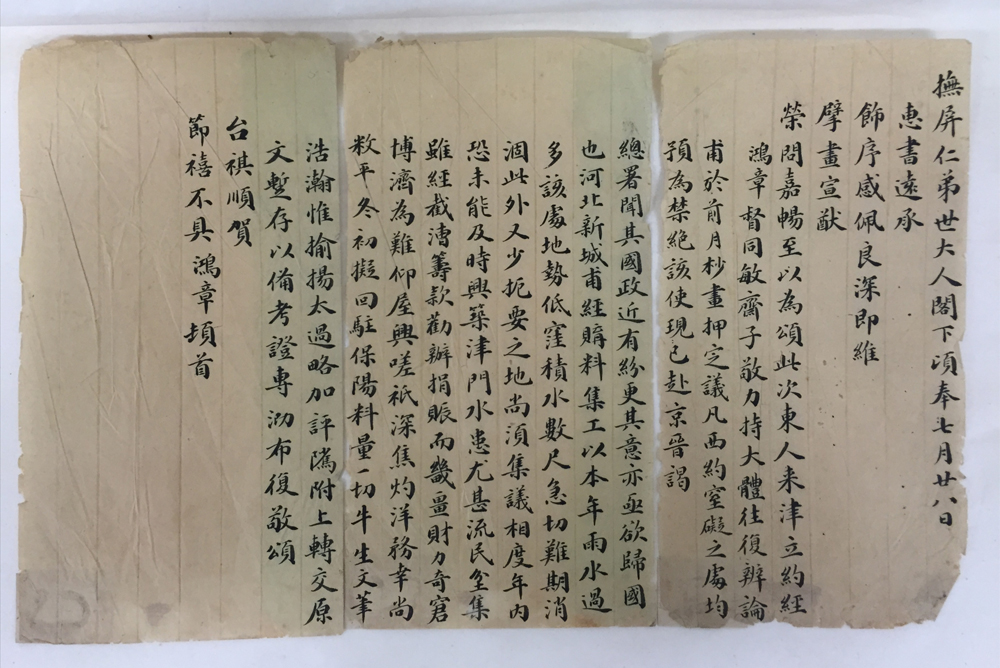 撫屏仁弟世大人閣下頃奉七月廿八日
惠書遠承
飾序感佩良深即維
擘畫宣猷
榮問嘉暢至以為頌此次東人来津立約經
鴻章督同敏齋子敬力持大體往復辨論
甫於前月杪畫押定議凡西約室礙之處均
預為禁絶該使現已赴京晉謁
總署聞其國政近有紛更其意亦亟欲歸國
也河北新城甫經購料集工以本年雨水過
多該處地勢低窪積水數尺急切難期消
涸此外又少扼要之地尚須集議相度年内
恐未能及時興築津門水患尤甚流民坌集
雖經截漕籌款勸辦捐賑而畿畺財力奇窘
博濟為難仰屋興嗟祇深焦灼洋務幸尚
敉平冬初擬回駐保陽料量一切牛生文筆
浩瀚惟揄揚太過略加評隲附上轉交原
文暫存以備考證專泐布復敬頌
台祺順賀
節禧不具 鴻章頓首